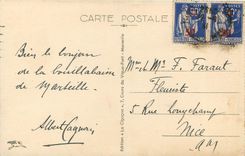 CARTE POSTALE
Bien le bonjour
de la bouillabaisse
de Marseille
Albert Cagnoni
Edition "La Cigogne", 7, Cours du Vieux-Port - Marseille
Mme et Mr F. Faraut
Fleuriste
5 Rue Longchamp
Nice
A.M